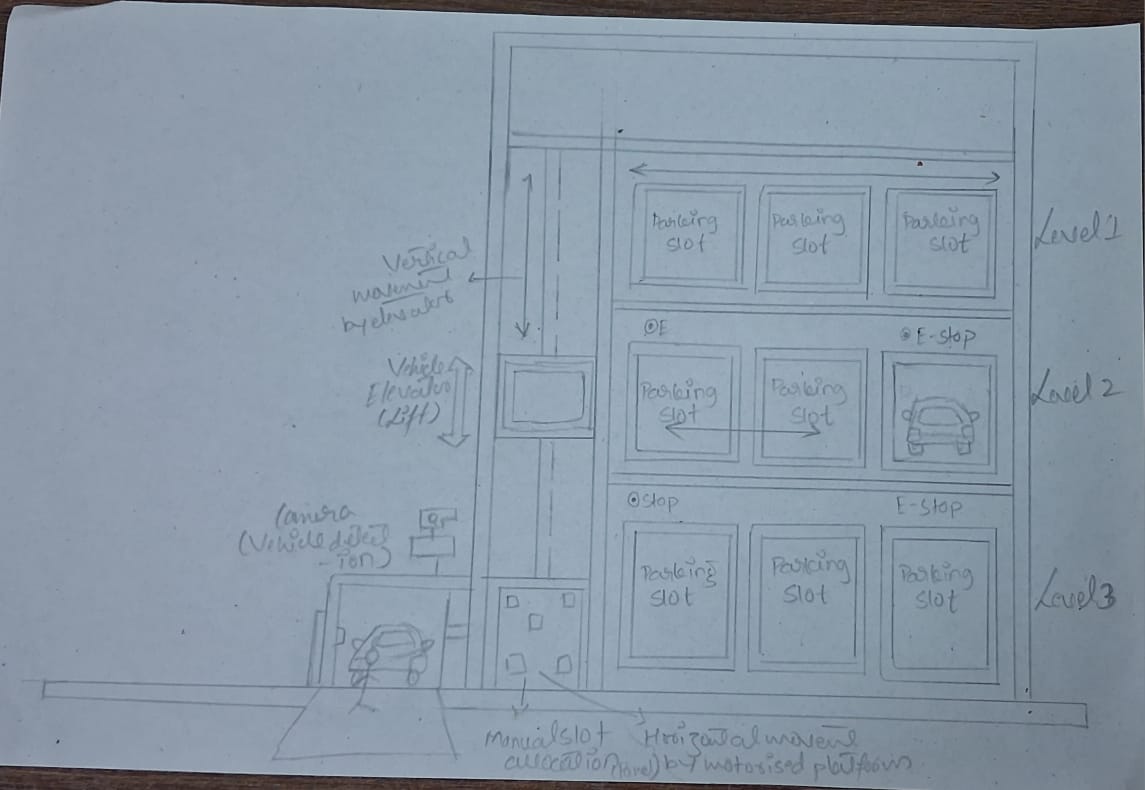 Parking
slot
Parking
slot
Parking
slot
Level 1
Vertical
by elevator
E
E-stop
Vehicle
Elevator
(Lift)
Parking
slot
Parking
slot
Level 2
stop
E-stop
Camera
(Vehicle detect
-ion)
Parking
slot
Parking
slot
Parking
slot
Level 3
Manual slot
allocation
by motorised platform